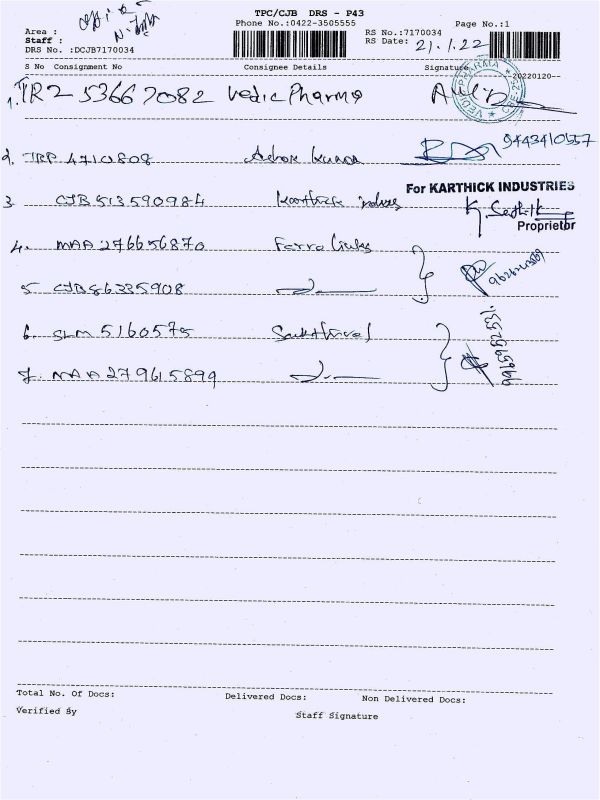 TPC/CJB DRS - P43
Phone No.:0422-3505555 Page No.:1
Area :
Staff : RS No.:7170034
DRS No. :DCJB7170034 RS Date: 21.1.22
S No Consignment No Consignee Details Signature
20220120--
1. TR2 53667082 Vedic Pharma
VEDIC PHARMA
2. TRP 4710808 Ashok Kumar 9443410557
3 CJB 513590984 Karthick
For KARTHICK INDUSTRIES
Proprietor
4. MAA 276656870 Ferro Links
5 CJB 86335908
6. SLM 5160575 Sakthivel
7. MAA 279615899
Total No. Of Docs: Delivered Docs: Non Delivered Docs:
Verified By Staff Signature